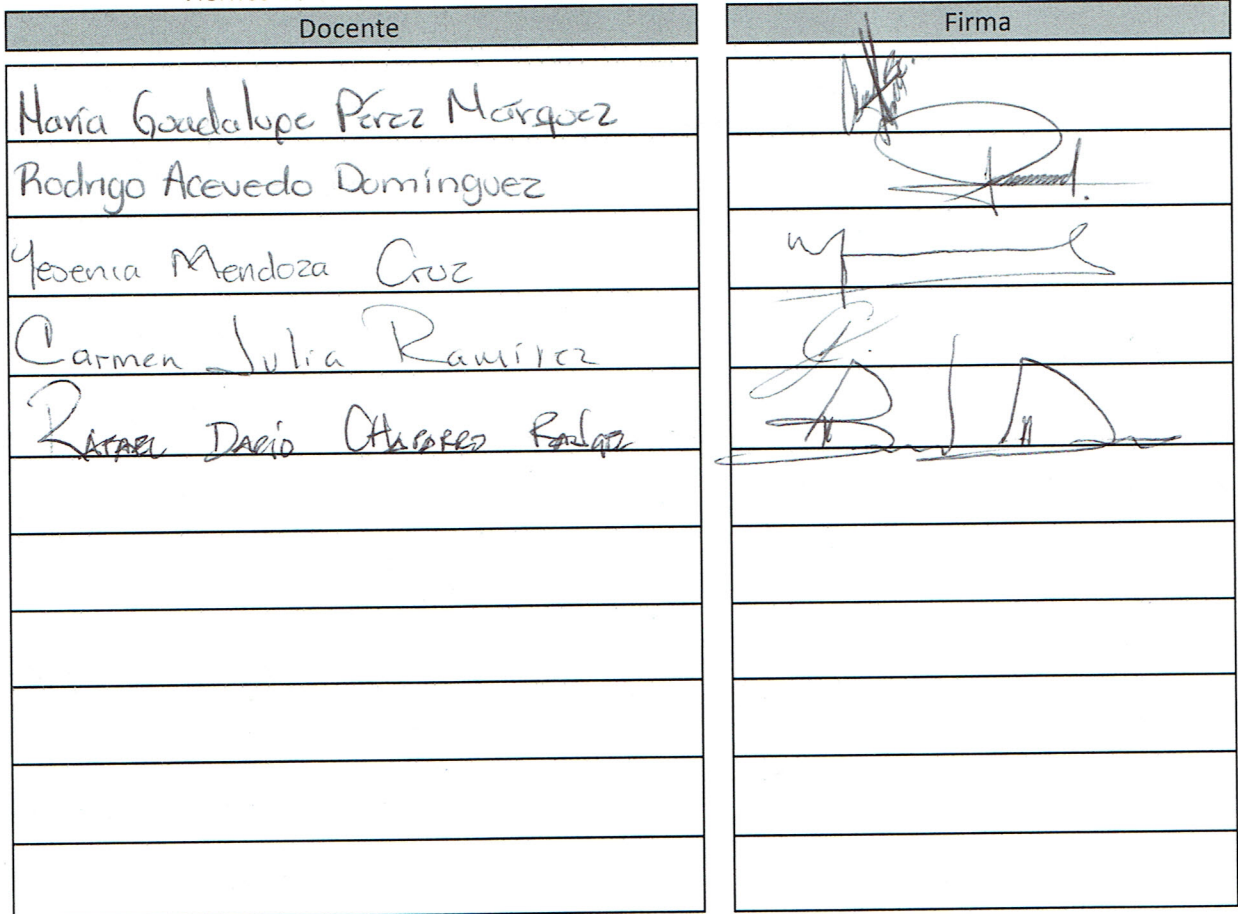 Docente Firma
María Guadalupe Pérez Márquez
Rodrigo Acevedo Domínguez
Yesenia Mendoza Cruz
Carmen Julia Ramírez
RAFAEL DARÍO CHAPARRO